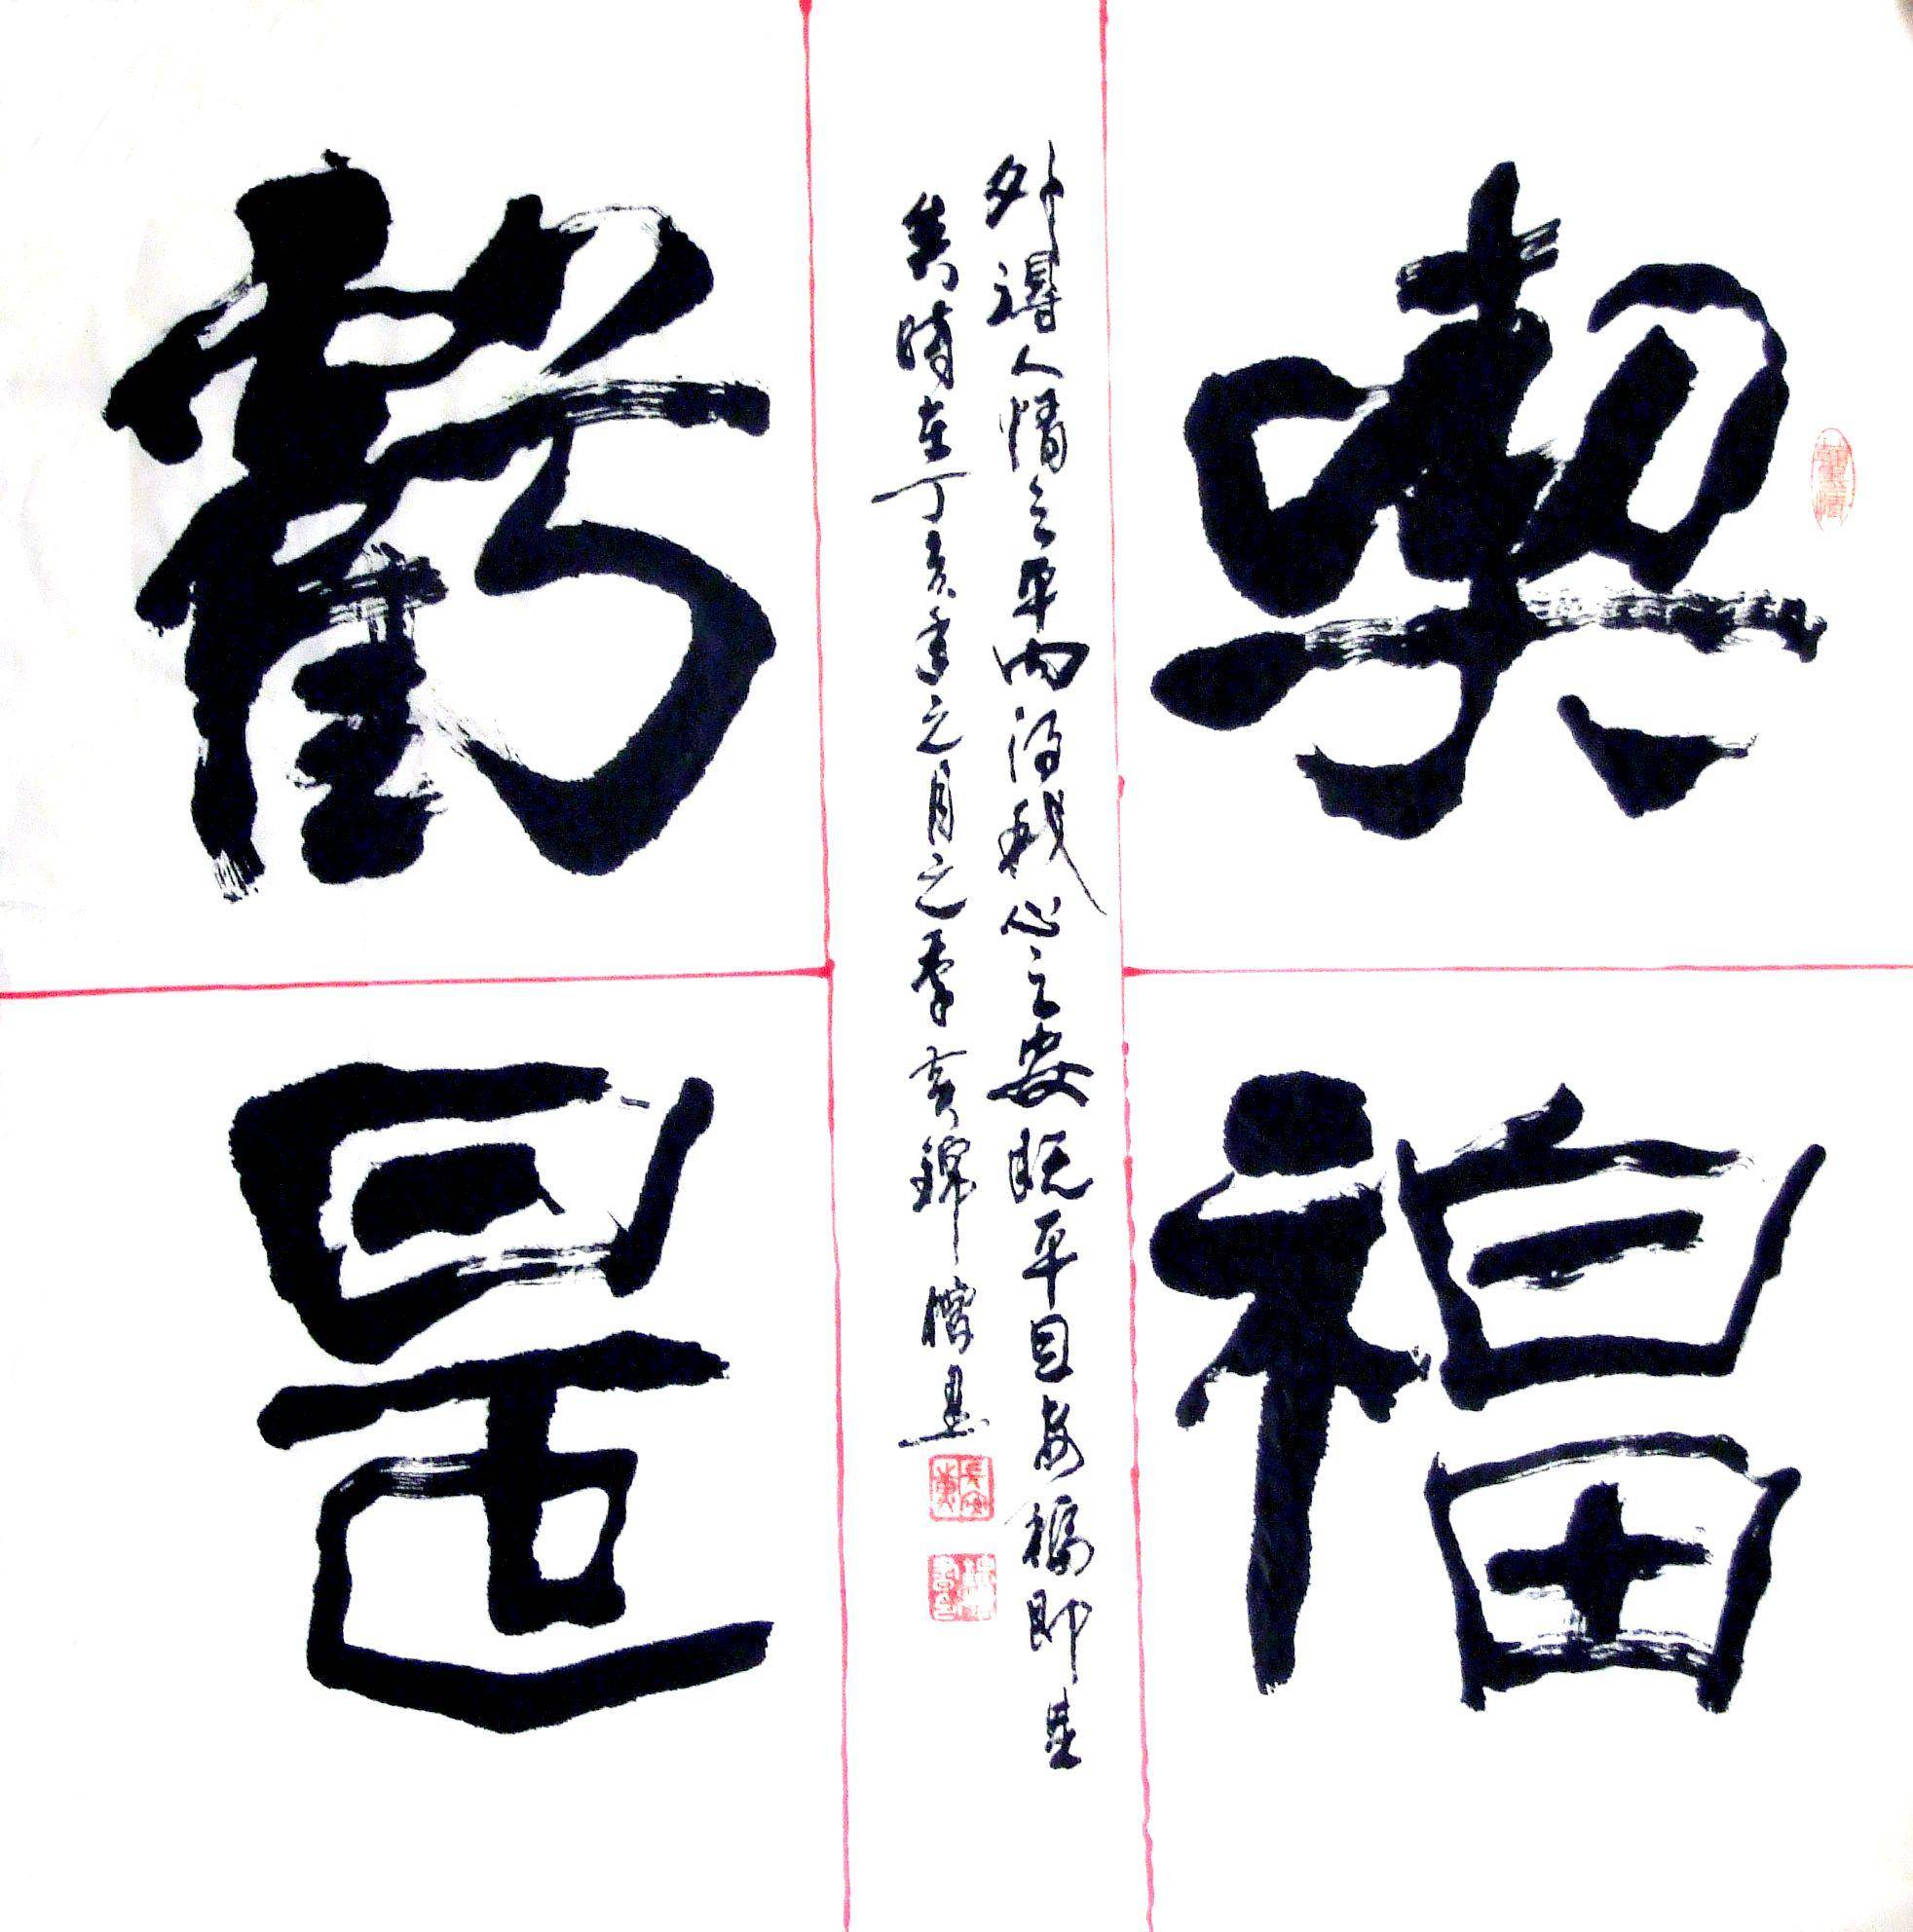 喫虧
是福
外得人情之平内得我心之安既平且安福即是
矣時在丁亥年元月之季黄錦